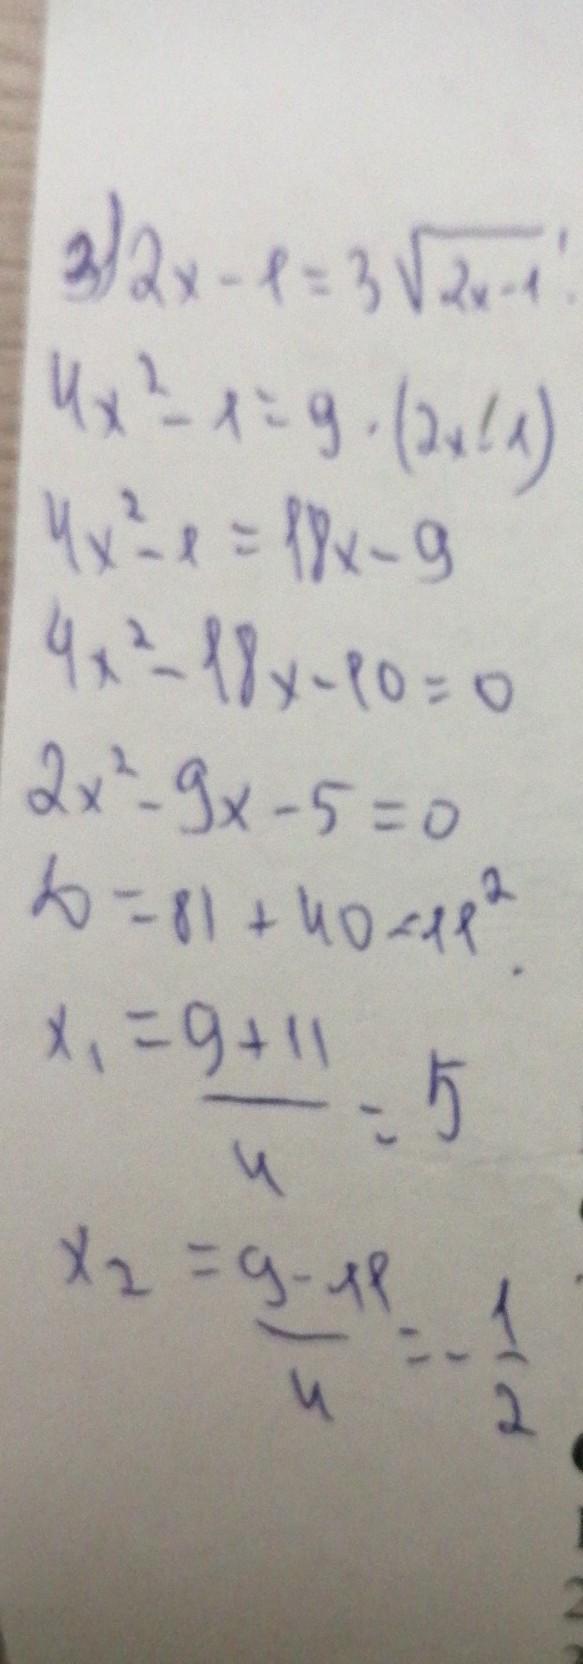 3) 2x - 1 = 3√(2x-1)
4x² - 1 = 9 · (2x - 1)
4x² - 1 = 18x - 9
4x² - 18x - 10 = 0
2x² - 9x - 5 = 0
D = 81 + 40 = 11².
x₁ = (9+11)/4 = 5
x₂ = (9-11)/4 = -1/2